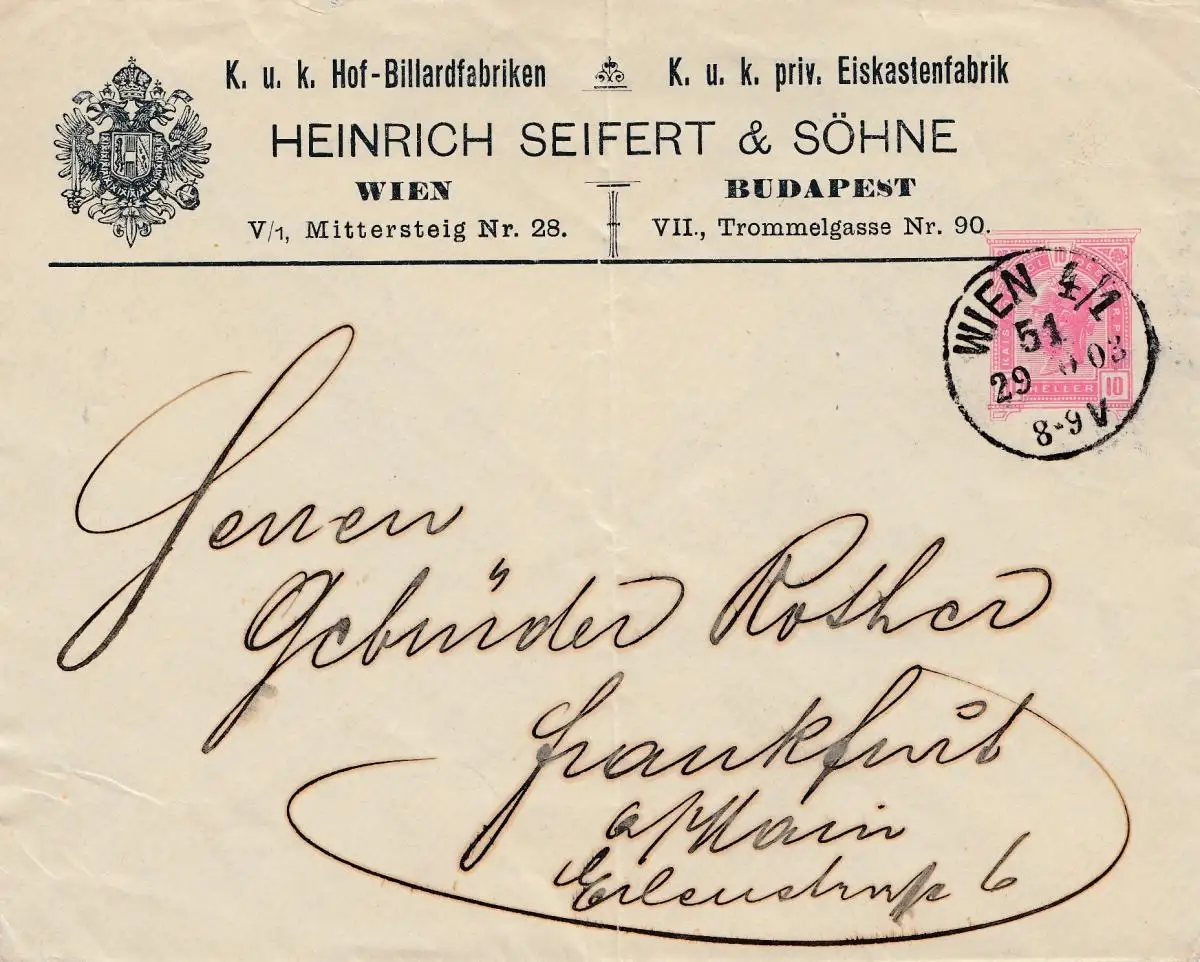 K. u. k. Hof-Billardfabriken K. u. k. priv. Eiskastenfabrik
HEINRICH SEIFERT & SÖHNE
WIEN BUDAPEST
V/1, Mittersteig Nr. 28. VII., Trommelgasse Nr. 90.
10
HELLER 10
WIEN 4/1
51
29 03
8-9 V
Herren
Gebrüder Rother
Frankfurt
a/Main
Erlenstraße 6